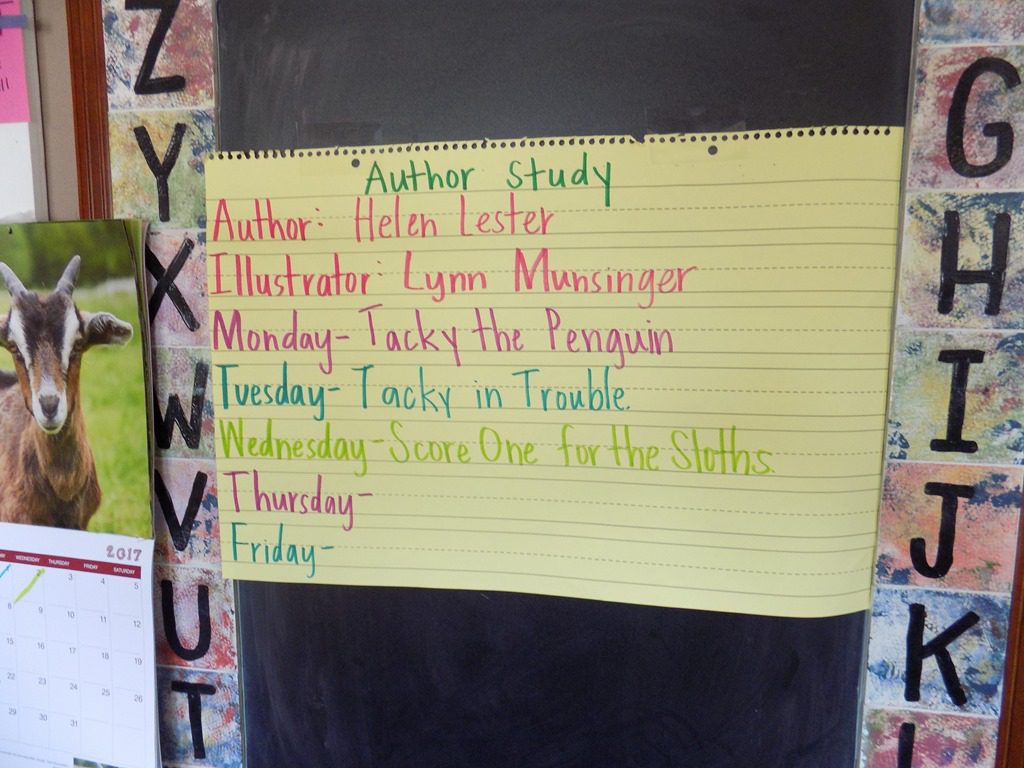 Author Study
Author: Helen Lester
Illustrator: Lynn Munsinger
Monday- Tacky the Penguin
Tuesday- Tacky in Trouble.
Wednesday- Score One for the Sloths.
Thursday-
Friday-
Z
Y
X
W
V
U
T
G
H
I
J
K
2017
WEDNESDAY THURSDAY FRIDAY SATURDAY
3 4 5
8 9 10 11 12
15 16 17 18 19
22 23 24 25 26
29 30 31